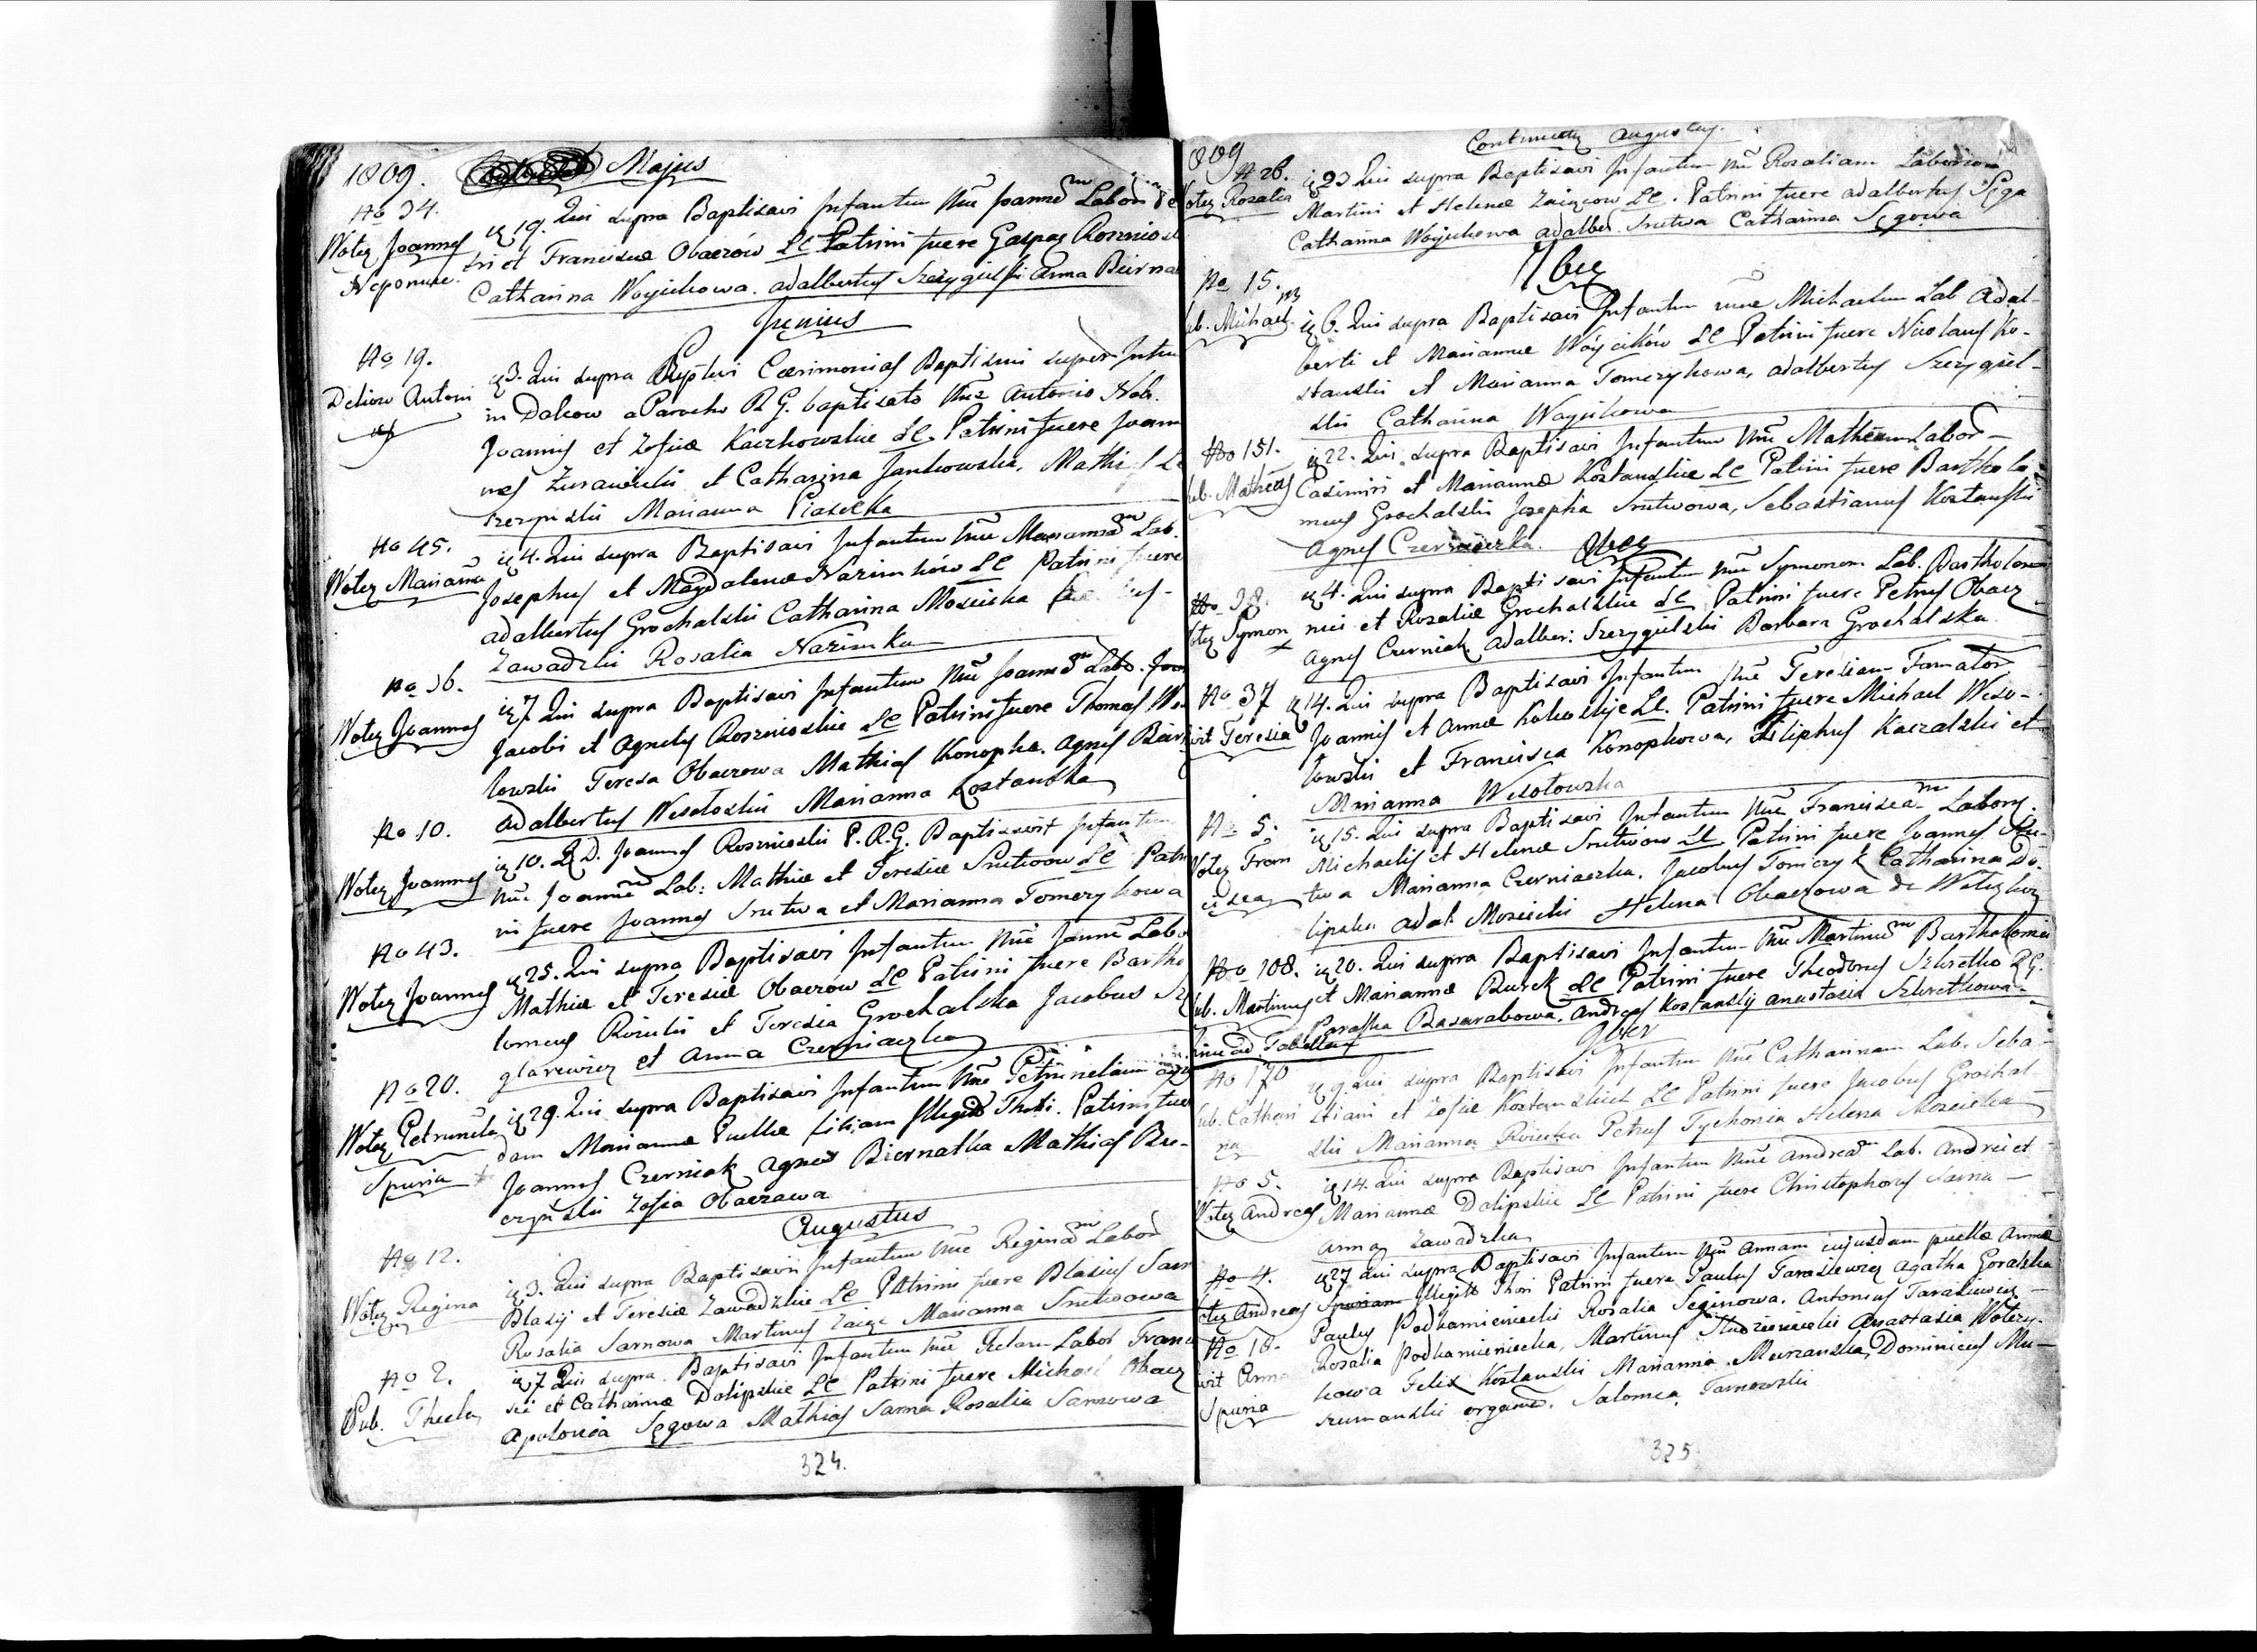 1809. Majus
No 34.
Wotez Joannes
Nepomuce.
19. Qui supra Baptisavi Infantem Nne Joannem Labori
tri et Franciscæ Obaczów LC Patrini fuere Gaspar Rosznios
Catharina Woyciehowa. adalbertus Szczygielski Anna Beirna
Junius
No 19.
Deliow Antoni
us
3. Qui supra Cærimonias Baptismi super Infan
in Daleow a Parocho R G. baptisato Nne Antonio Nob.
Joannis et Zofiæ Kaczkowskie LC. Patrini fuere Joann
nes Zurawicki et Catharina Jankowska, Mathi
szczynski Marianna Piasecka
No 45.
Wotez Mariana
4. Qui supra Baptisavi Infantem Nne Mariannam Lab.
Josephus et Magdalenæ Nazimków LC Patrini fuere
adalbertus Grochalski Catharina Mosciska
Zawadzki Rosalia Nazimka
No 36.
Wotez Joannes
7 Qui supra Baptisavi Infantem Nne Joannem Labo.
Jacobi et Agnetis Rosznioskie LC Patrini fuere Thomas
lowski Teresa Obaczowa Mathias Konopka. Agnes Bier
adalbertus Wesołoski Marianna Kostanska
No 10.
Wotez Joannes
10. R D. Joannes Rosznioski P. R.G. Baptisavit Infantem
Nne Joannem Lab: Mathiæ et Teresiæ Snitwow LC Patri
ni fuere Joannes Snitwa et Marianna Tomczykowa
No 43.
Wotez Joannes
25. Qui supra Baptisavi Infantem Nne Joannem Labo
Mathiæ et Teresiæ Obaczów LC Patrini fuere Bartho
lomeus Roiecki et Teresia Grochalska Jacobus
glarewicz et Anna Czerniaczka
No 20.
Wotez Petrunela
Spuria
29. Qui supra Baptisavi Infantem Nne Petrunelam cujus
dam Mariannæ Puellæ filiam Illegit Thori. Patrini fue
Joannes Czerniak Agnes Biernatka Mathias Bu-
czynski Zofia Obaczowa
Augustus
No 12.
Wotez Regina
3. Qui supra Baptisavi Infantem Nne Reginam Labor
Blasij et Teresiæ Zawadzkie LC Patrini fuere Blasius Sarn
Rosalia Sarnowa Martinus Zaiąc Marianna Snitwowa
No 2.
Pub. Thecla
7 Qui supra Baptisavi Infantem Nne Teclam Labor Franc
sci et Catharinæ Dolipskie LC Patrini fuere Michael Obacz
Apolonia Sęgowa Mathias Sarna Rosalia Sarnowa
324.
809 Continuatur Augustus.
No 26.
Wotez Rosalia
23 Qui supra Baptisavi Infantem Nne Rosaliam Laborios
Martini et Helenæ Zaiącow LC. Patrini fuere adalbertus Sęga
Catharina Woyciehowa adalber. Snitwa Catharina Sęgowa
7ber
No 15.
ub. Michael
6. Qui supra Baptisavi Infantem nne Michaelem Lab Adal-
berti et Mariannæ Woycików LC Patrini fuere Nicolaus Ko-
stanski et Marianna Tomczykowa, adalbertus Szczygiel-
ski Catharina Woycikowa
No 151.
ub. Matheus
22. Qui supra Baptisavi Infantem Nne Matheum Labor-
Casimiri et Mariannæ Kostanskie LC Patrini fuere Bartholo
meus Grochalski Josepha Snitwowa, Sebastianus Kostanski
Agnes Czerniaczka. 8ber
No 38.
otez Symon
4. Qui supra Baptisavi Infantem Nne Symonem Lab. Bartholom
mei et Rosaliæ Grochalskie LC Patrini fuere Petrus Obacz
Agnes Czerniak adalber: Szczygielski Barbara Grochalska
No 37
Teresia
14. Qui supra Baptisavi Infantem Nne Teresiam Famator
Joannis et Annæ LC. Patrini fuere Michael Weso-
lowski et Francisca Konopkowa, Kaczalski et
Marianna Wesołowska
No 5.
Wotez Fran
cisca
15. Qui supra Baptisavi Infantem Nne Franciscam Labory.
Michaelis et Helenæ Snitwow LC Patrini fuere Joannes Sni-
twa Marianna Czerniaczka. Jacobus Tomczyk Catharina Do-
lipska adal Moscicki Helena Obaczowa de
No 108.
ub. Martinus
20. Qui supra Baptisavi Infantem Nne Martinum Bartholomei
et Mariannæ Burek LC Patrini fuere Theodorus Szkretko R.G.
Paraska Basarabowa. Andreas Kostanskij Anastasia Szkretkowa.
9ber
No 170
ub. Cathari
na
9 Qui supra Baptisavi Infantem Nne Catharinam Lab. Seba-
stiani et Zofiæ Kostanskich LC Patrini fuere Jacobus Grochal-
ski Marianna Roiecka Petrus Tychonia Helena Moscicka
No 5.
Wotez Andreas
14. Qui supra Baptisavi Infantem Nne Andream Lab. Andrei et
Mariannæ Dolipskie LC Patrini fuere Christophorus Sarna
Anna Zawadzka
No 4.
otez Andreas
27 Qui supra Baptisavi Infantem Nne Annam cujusdam puellæ Annæ
Spuriam Illegit Thori Patrini fuere Paulus Tarasiewicz Agatha Goralska
No 18.
Anna
Spuria
Paulus Podkamieniecki Rosalia Seginowa. Antonius Tarasiewicz
Rosalia Podkamieniecka, Martinus Anastasia Wotczy-
kowa Felix Kostanski Marianna Murzanska, Dominicus Mu-
szumanski organ. Salomea Tarnowski
325